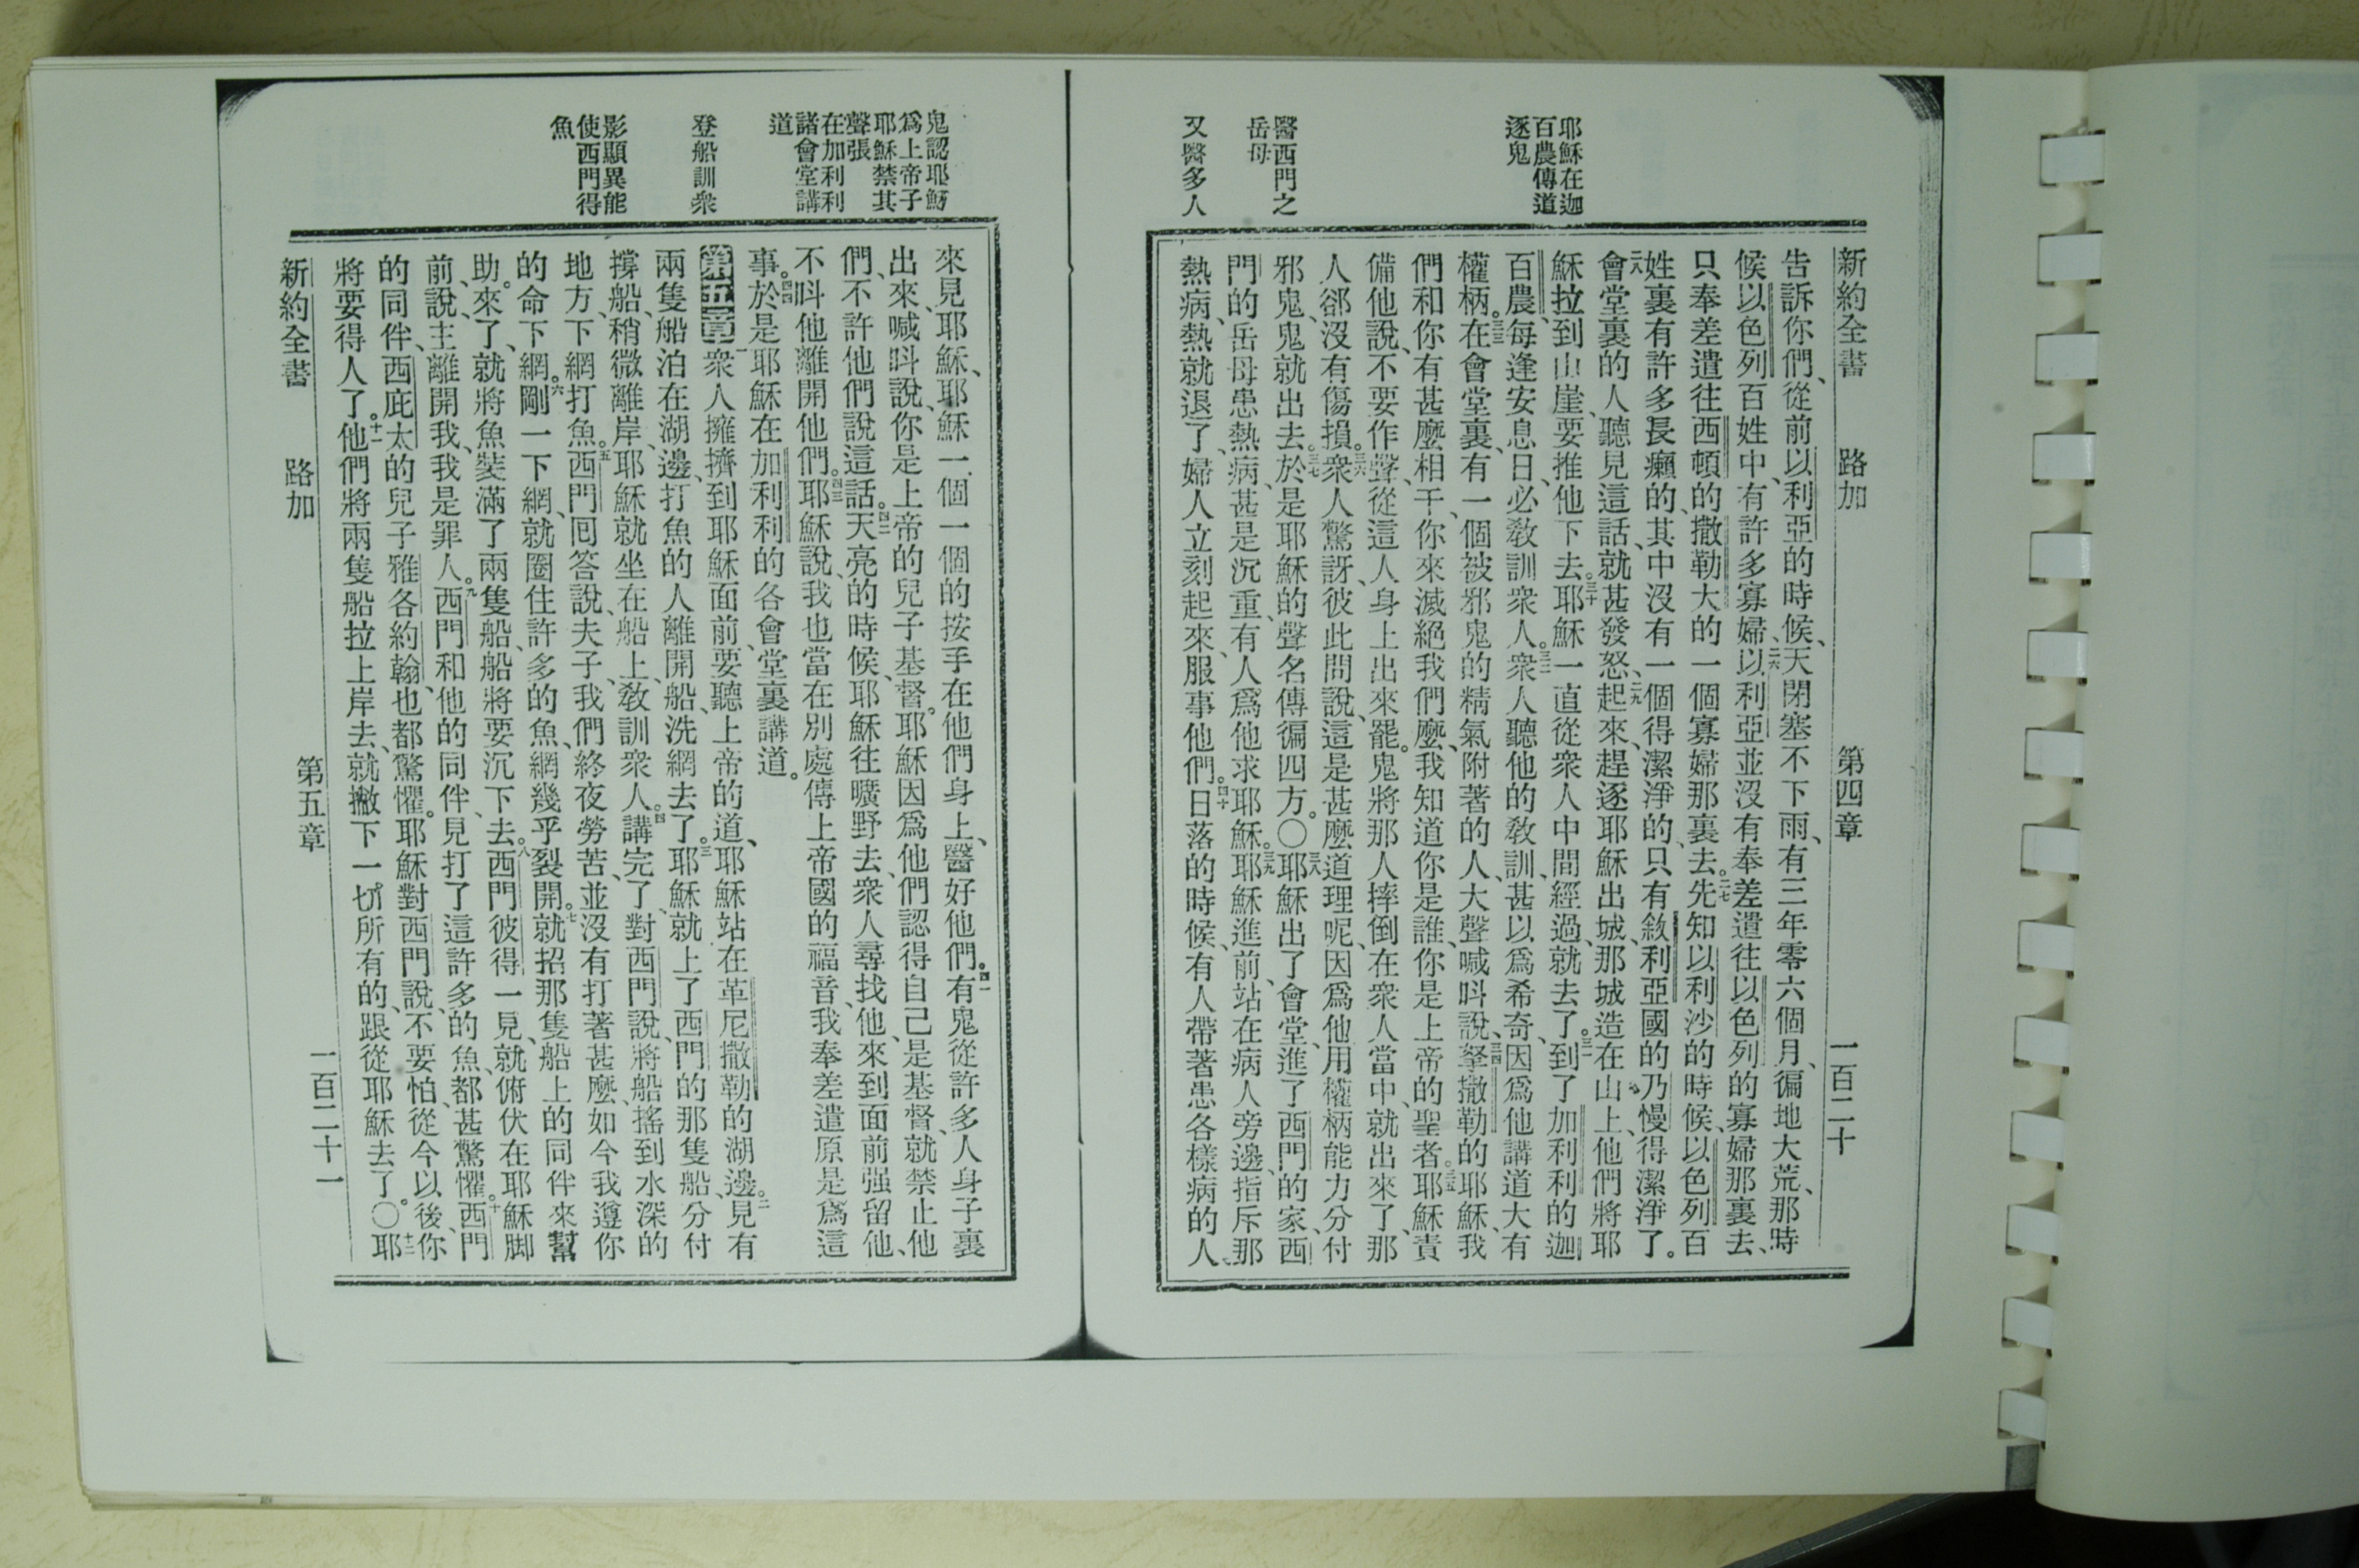 新約全書 路加 第四章 一百二十
耶穌在迦
百農傳道
逐鬼
醫西門之
岳母
又醫多人
告訴你們、從前以利亞的時候、天閉塞不下雨、有三年零六個月、徧地大荒、那時
候以色列百姓中、有許多寡婦、二六以利亞並沒有奉差遣往以色列的寡婦那裏去、
只奉差遣往西頓的撒勒大的一個寡婦那裏去。二七先知以利沙的時候、以色列百
姓裏有許多長癩的、其中沒有一個得潔淨的、只有敘利亞國的乃慢得潔淨了。
二八會堂裏的人、聽見這話、就甚發怒、二九起來、趕逐耶穌出城、那城造在山上、他們將耶
穌拉到山崖、要推他下去。三十耶穌一直從衆人中間經過、就去了。三一到了加利利的迦
百農、每逢安息日、必敎訓衆人。三二衆人聽他的敎訓、甚以爲希奇、因爲他講道大有
權柄。三三在會堂裏、有一個被邪鬼的精氣附著的人、大聲喊呌說、三四拏撒勒的耶穌、我
們和你有甚麼相干、你來滅絕我們麼、我知道你是誰、你是上帝的聖者。三五耶穌責
備他說、不要作聲、從這人身上出來罷。鬼將那人摔倒在衆人當中、就出來了、那
人郤沒有傷損。三六衆人驚訝、彼此問說、這是甚麼道理呢、因爲他用權柄能力分付
邪鬼、鬼就出去。三七於是耶穌的聲名傳徧四方。〇三八耶穌出了會堂、進了西門的家、西
門的岳母患熱病、甚是沉重、有人爲他求耶穌。三九耶穌進前、站在病人旁邊、指斥那
熱病、熱就退了、婦人立刻起來、服事他們。四十日落的時候、有人帶著患各樣病的人、
鬼認耶穌
爲上帝子
耶穌禁其
聲張
在加利利
諸會堂講
道
登船訓衆
影顯異能
使西門得
魚
來見耶穌、耶穌一個一個的按手在他們身上、醫好他們。四一有鬼從許多人身子裏
出來、喊呌說、你是上帝的兒子基督。耶穌因爲他們認得自己是基督、就禁止他
們、不許他們說這話。四二天亮的時候、耶穌往曠野去、衆人尋找他、來到面前强留他、
不呌他離開他們。四三耶穌說、我也當在別處傳上帝國的福音、我奉差遣原是爲這
事。四四於是耶穌在加利利的各會堂裏講道。
第五章一衆人擁擠到耶穌面前、要聽上帝的道、耶穌站在革尼撒勒的湖邊。二見有
兩隻船泊在湖邊、打魚的人離開船、洗網去了。三耶穌就上了西門的那隻船、分付
撐船、稍微離岸、耶穌就坐在船上、敎訓衆人。四講完了、對西門說、將船搖到水深的
地方、下網打魚。五西門回答說、夫子、我們終夜勞苦、並沒有打著甚麼、如今我遵你
的命下網。六剛一下網、就圈住許多的魚、網幾乎裂開。七就招那隻船上的同伴來幫
助。來了、就將魚裝滿了兩隻船、船將要沉下去。八西門彼得一見、就俯伏在耶穌脚
前、說、主、離開我、我是罪人。九西門和他的同伴、見打了這許多的魚、都甚驚懼。十西門
的同伴、西庇太的兒子雅各約翰、也都驚懼。耶穌對西門說、不要怕、從今以後、你
將要得人了。十一他們將兩隻船拉上岸去、就撇下一切所有的、跟從耶穌去了。〇十二耶
新約全書 路加 第五章 一百二十一